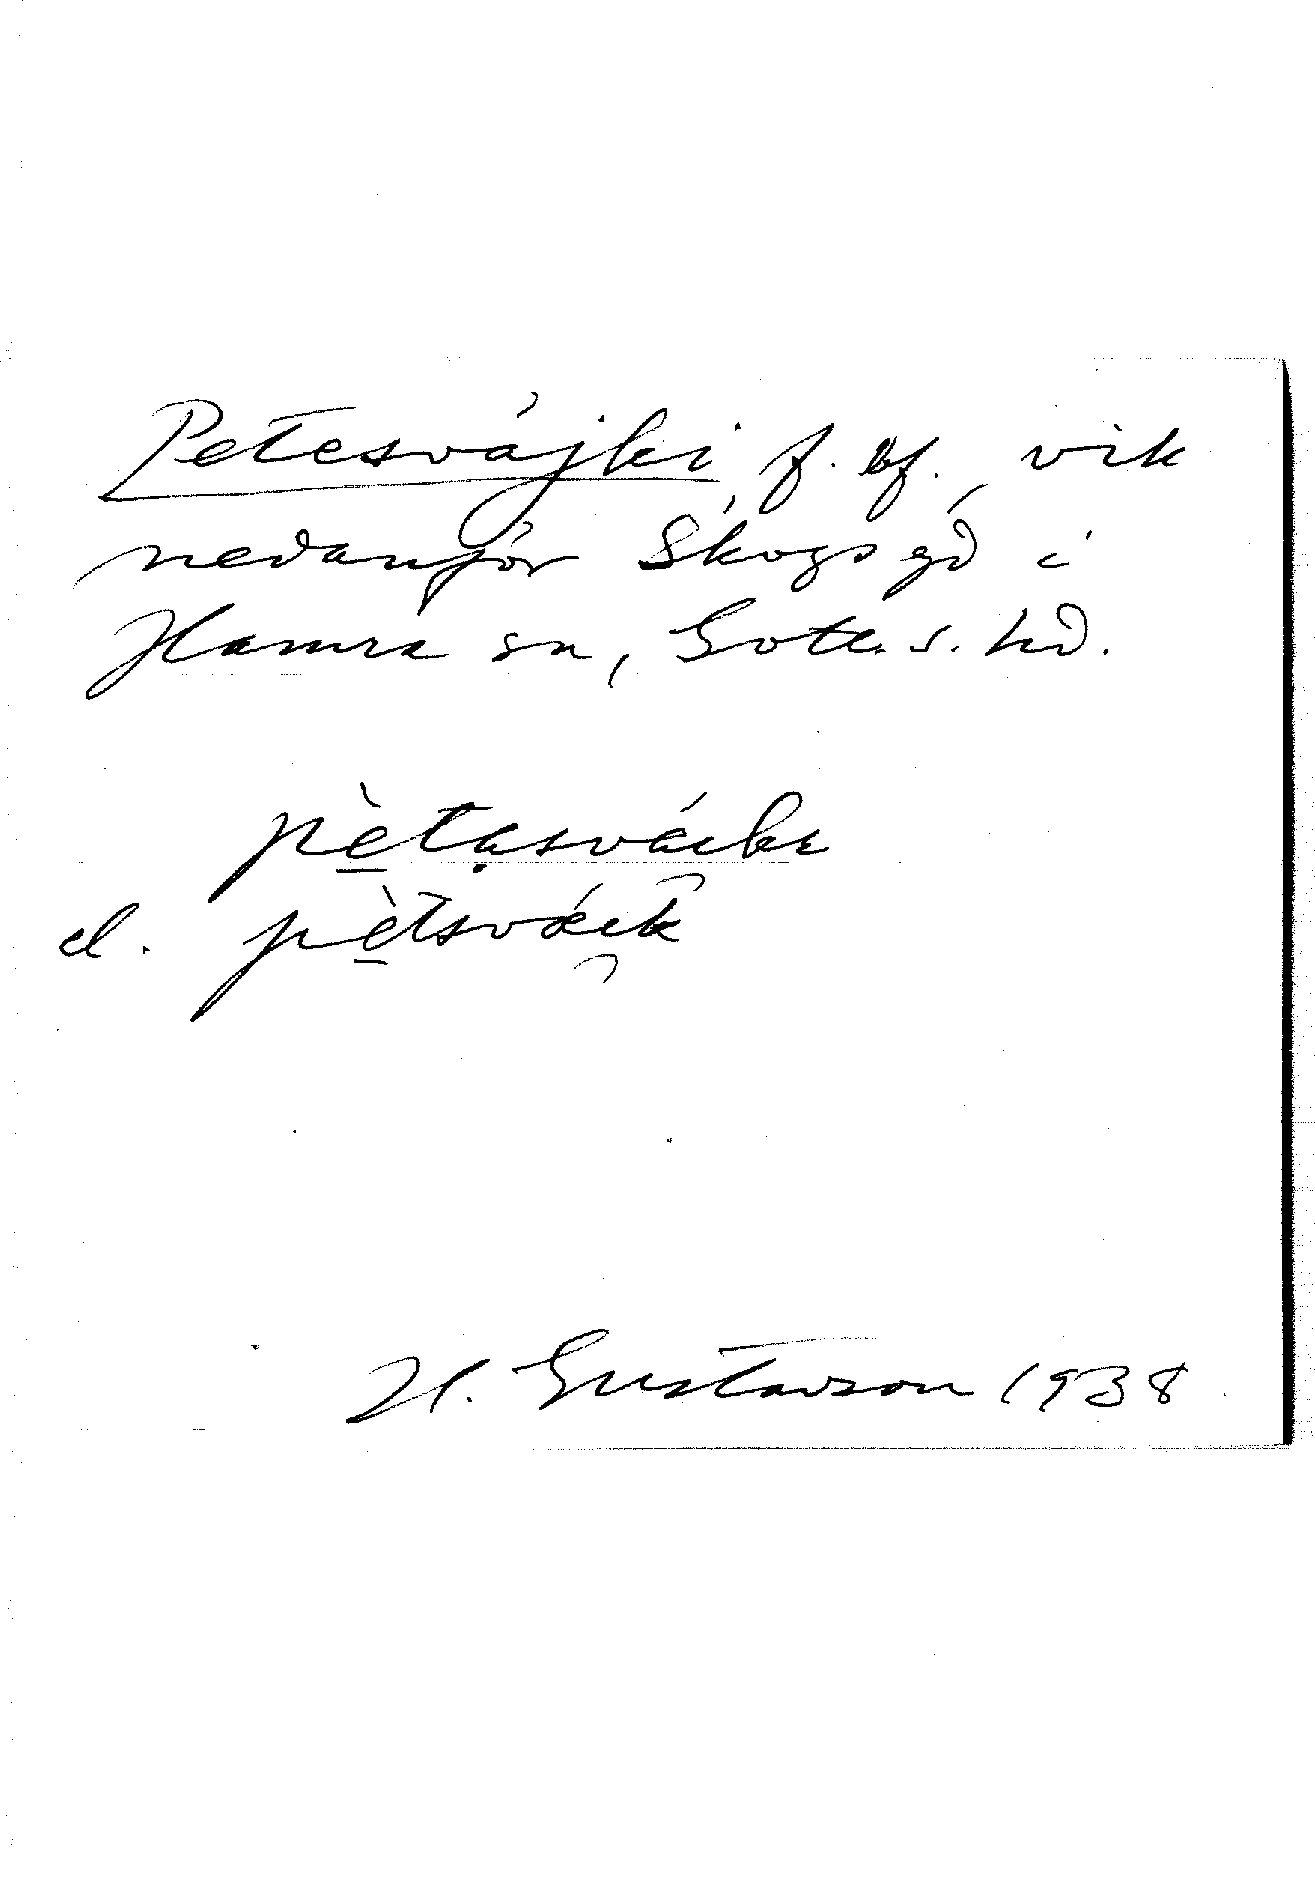 Petesvájki f. bf., vik
nedanför Skogs gd i
Hamra sn, Gotl. s. hd.
pètasváiki
el. pètsváik
H. Gustavson 1938